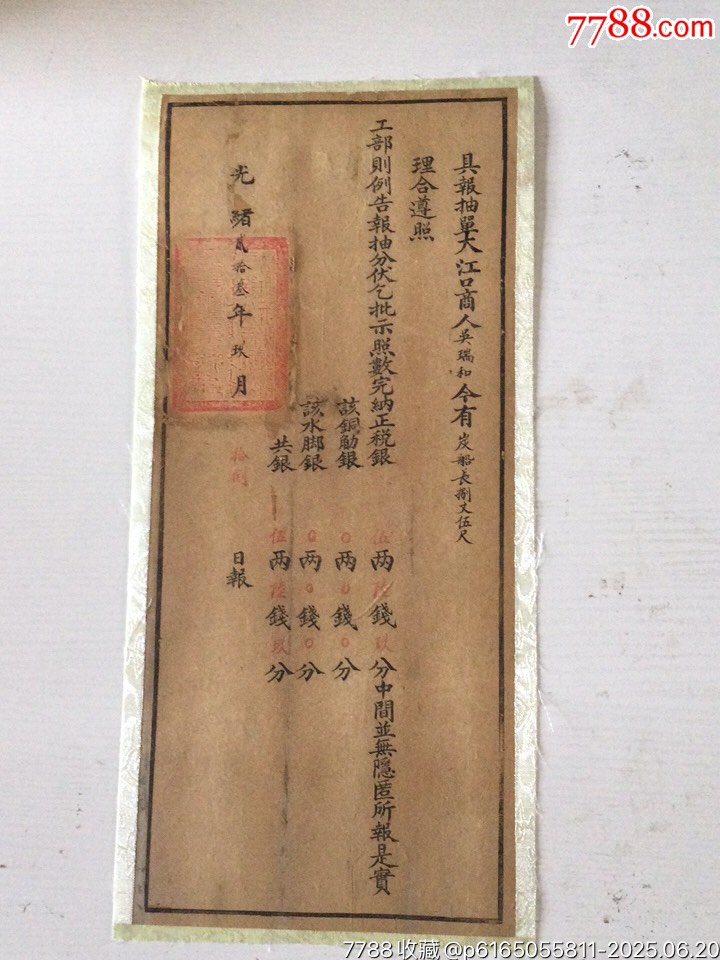 7788.com
具報抽單大江口商人吳瑞和今有炭船長捌丈伍尺
理合遵照
工部則例告報抽分伏乞批示照數完納正税銀伍两陸錢玖分中間並無隱匿所報是實
該銅觔銀〇两〇錢〇分
該水脚銀〇两〇錢〇分
共銀伍两陸錢玖分
光緒貳拾叁年玖月拾捌日報
7788收藏 @p6165055811-2025.06.20